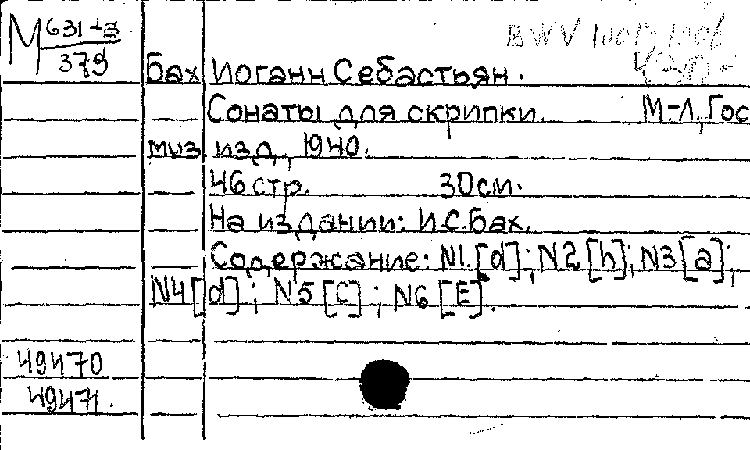 М 631-3
379
BWV
Бах Иоганн Себастьян.
Сонаты для скрипки. М-Л, Гос
муз изд, 1940.
46 стр. 30 см.
На издании: И.С.Бах.
Содержание: N1.[d]; N2[h], N3[a];
N4[d]; N5[C]; N6[E].
49470
49471.